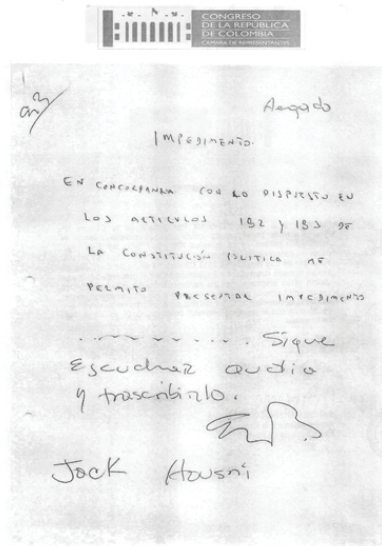 CONGRESO
DE LA REPÚBLICA
DE COLOMBIA
CÁMARA DE REPRESENTANTES
Negado
IMPEDIMENTO.
EN CONCORDANCIA CON LO DISPUESTO EN
LOS ARTICULOS 182 Y 183 DE
LA CONSTITUCIÓN POLITICA ME
PERMITO PRESENTAR IMPEDIMENTO
. . . . . . . . . . Sigue
Escuchar audio
y trascribirlo.
Jack Housni